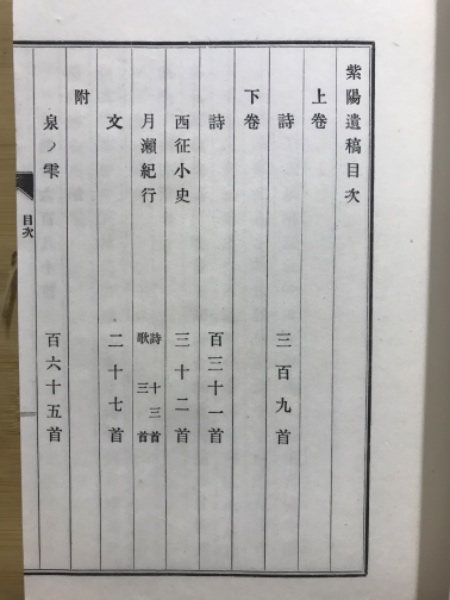 紫陽遺稿目次
上卷
詩 三百九首
下卷
詩 百三十一首
西征小史 三十二首
月瀬紀行 詩十三首 歌三首
文 二十七首
附
泉ノ雫 百六十五首
目次